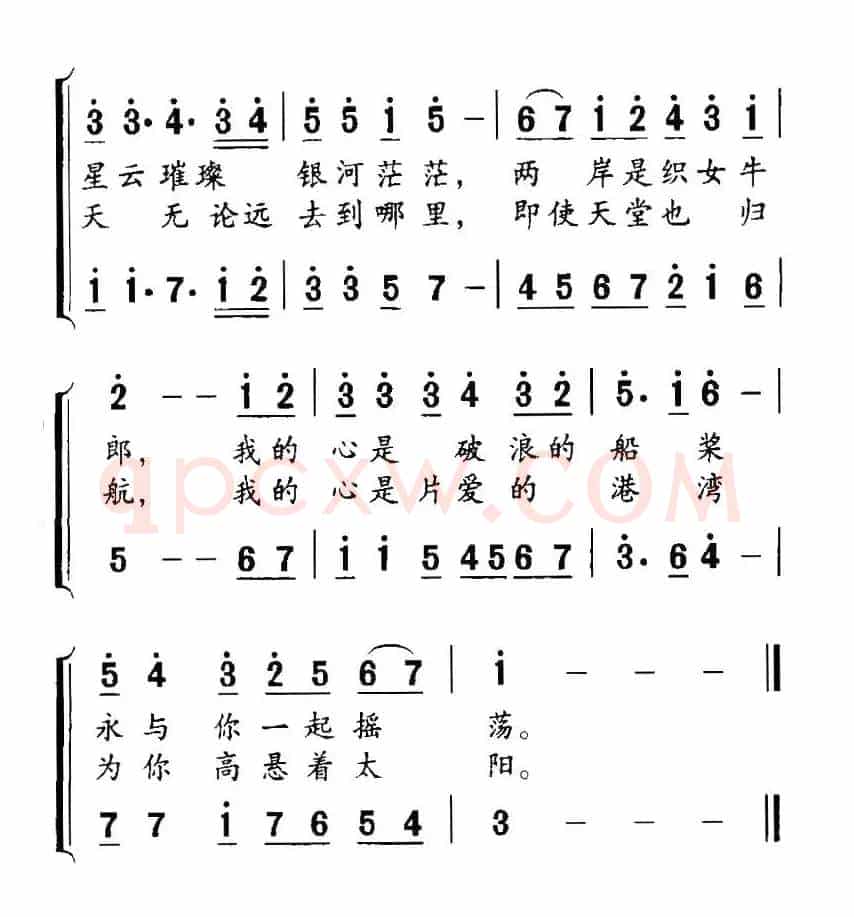 3 3· 4· 3 4 | 5 5 1 5 – | 6 7 1 2 4 3 1 |
星云璀璨 银河茫茫，两 岸是织女牛
天 无论远去到哪里，即使天堂也 归
1 1· 7· 1 2 | 3 3 5 7 – | 4 5 6 7 2 1 6 |
2 – – 1 2 | 3 3 3 4 3 2 | 5· 1 6 – |
郎， 我的心是 破浪的船 桨
航， 我的心是片爱的 港 湾
qpcxw.COM
5 – – 6 7 | 1 1 5 4 5 6 7 | 3· 6 4 – |
5 4 3 2 5 6 7 | 1 – – – ‖
永与 你一起摇 荡。
为你 高悬着太 阳。
7 7 1 7 6 5 4 | 3 – – – ‖